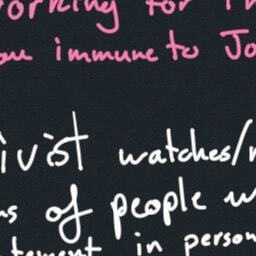 orking for
ou immune to Jo
ivist watches/
s of people w
tement in person